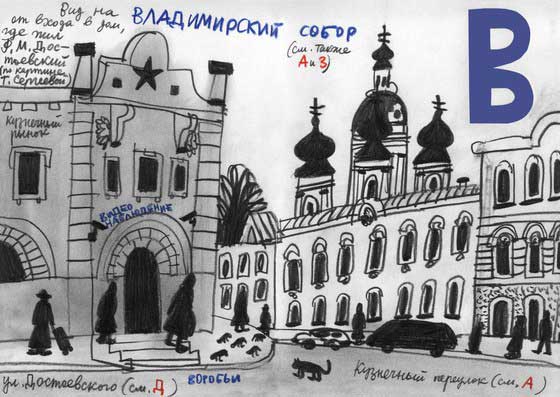 Вид на
от входа в дом,
где жил
Ф. М. Дос-
тоевский
(по картине
Т. Сергеевой)
ВЛАДИМИРСКИЙ СОБОР
(см. также
А и З)
В
Кузнечный
рынок
ВИДЕО
НАБЛЮДЕНИЕ
ул. Достоевского (см. Д)
ВОРОБЬИ
Кузнечный переулок (см. А)